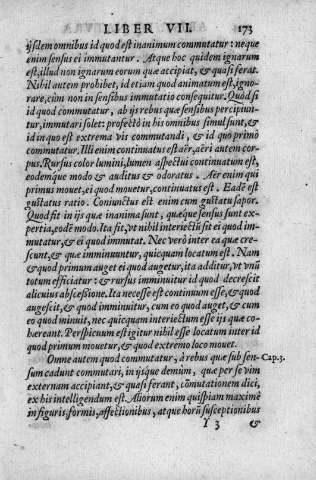 LIBER VII. 173
ijsdem omnibus id quod est inanimum commutatur: neque
enim sensus ei immutantur. Atque hoc quidem ignarum
est, illud non ignarum eorum quæ accipiat, & quasi ferat.
Nihil autem prohibet, id etiam quod animatum est, igno-
rare, cùm non in sensibus immutatio consequitur. Quòd si
id quod commutatur, ab ijs rebus quæ sensibus percipiun-
tur, immutari solet: profectò in his omnibus simul sunt, &
id in quo est extrema vis commutandi, & id quo primò
commutatur. Illi enim continuatus est aër, aëri autem cor-
pus. Rursus color lumini, lumen aspectui continuatum est,
eodemq́ue modo & auditus & odoratus. Aër enim qui
primus mouet, ei quod mouetur, continuatus est. Eadē est
gustatus ratio. Coniunctus est enim cum gustatu sapor.
Quod fit in ijs quæ inanima sunt, quæq́ue sensus sunt ex-
pertia, eodē modo. Ita fit, vt nihil interiectū sit ei quod im-
mutatur, & ei quod immutat. Nec verò inter ea quæ cre-
scunt, & quæ imminuuntur, quicquam locatum est. Nam
& quod primum auget ei quod augetur, ita additur, vt vnū
totum efficiatur: & rursus imminuitur id quod decrescit
alicuius abscessione. Ita necesse est continuum esse, & quod
augescit, & quod imminuitur, cum eo quod auget, & cum
eo quod minuit, nec quicquam interiectum esse ijs quæ co-
hæreant. Perspicuum est igitur nihil esse locatum inter id
quod primum mouetur, & quod extremo loco mouet.
Omne autem quod commutatur, à rebus quæ sub sen- Cap.3.
sum cadunt commutari, in ijsque demùm, quæ per se vim
externam accipiant, & quasi ferant, cōmutationem dici,
ex his intelligendum est. Aliorum enim quispiam maximè
in figuris, formis, affectionibus, atque horū susceptionibus
Y 3 &